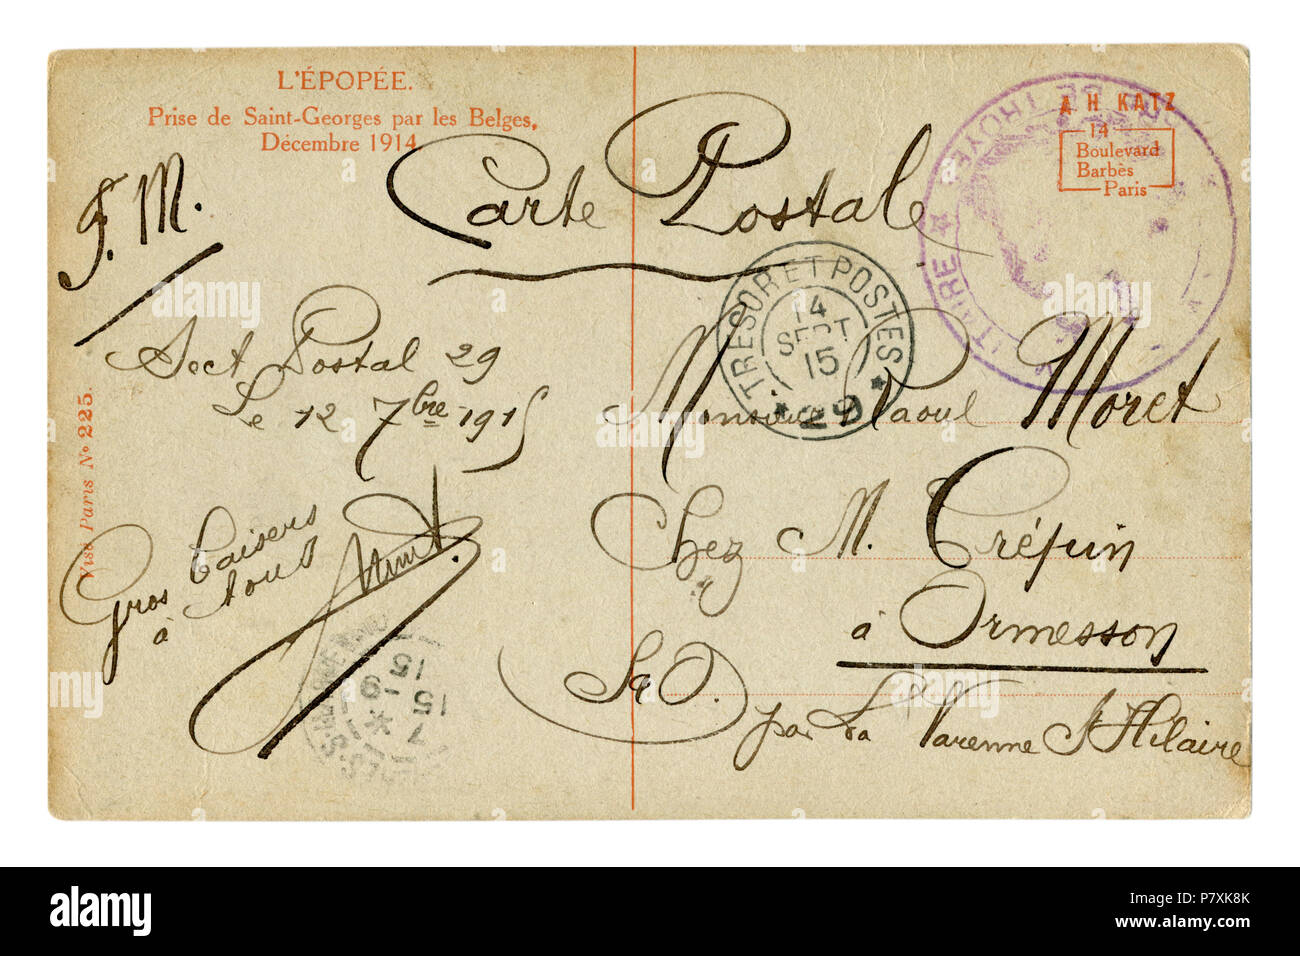 L'ÉPOPÉE.
Prise de Saint-Georges par les Belges,
Décembre 1914
F. M.
Carte Postale
A H KATZ
14
Boulevard
Barbès
Paris
TRESOR ET POSTES
14
SEPT
15
* 29 *
Sect Postal 29
Le 12 7bre 1915
Monsieur Raoul Moret
Chez M. Crépin
à Ormesson
S&O.
par La Varenne St Hilaire
Gros baisers
à tous
Visé Paris Nº 225.
15 -9
15
alamy
alamy
Image ID: P7XK8K
www.alamy.com